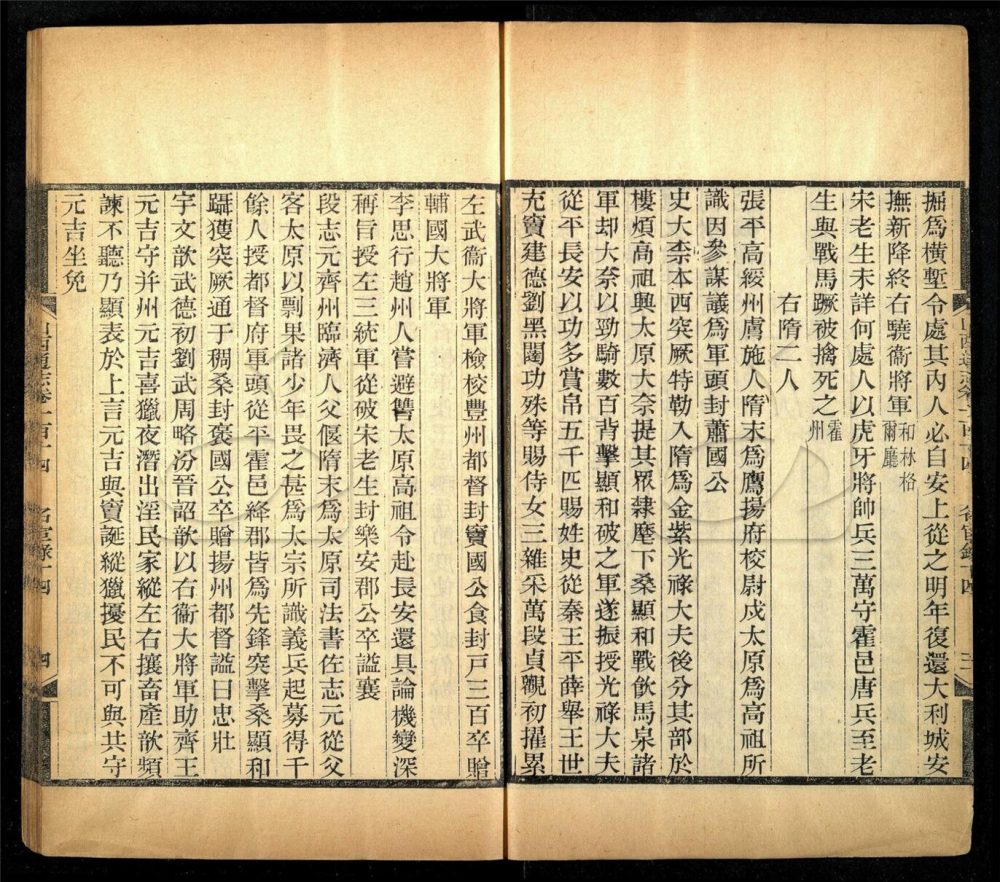 掘爲橫塹令處其內人必自安上從之明年復還大利城安
撫新降終右驍衞將軍和林格爾廳
宋老生未詳何處人以虎牙將帥兵三萬守霍邑唐兵至老
生與戰馬蹶被擒死之霍州
右隋二人
張平高綏州膚施人隋末爲鷹揚府校尉戍太原爲高祖所
識因參謀議爲軍頭封蕭國公
史大柰本西突厥特勒入隋爲金紫光祿大夫後分其部於
樓煩高祖興太原大奈提其眾隸麾下桑顯和戰飮馬泉諸
軍却大奈以勁騎數百背擊顯和破之軍遂振授光祿大夫
從平長安以功多賞帛五千匹賜姓史從秦王平薛舉王世
充竇建德劉黑闥功殊等賜侍女三雜采萬段貞觀初擢累
山西通志卷一百十四 名宦錄十四 三
左武衞大將軍檢校豐州都督封竇國公食封戸三百卒贈
輔國大將軍
李思行趙州人嘗避讐太原高祖令赴長安還具論機變深
稱旨授左三統軍從破宋老生封樂安郡公卒謚襄
段志元齊州臨濟人父偃隋末爲太原司法書佐志元從父
客太原以剽果諸少年畏之甚爲太宗所識義兵起募得千
餘人授都督府軍頭從平霍邑絳郡皆爲先鋒突擊桑顯和
躡獲突厥通于稠桑封褒國公卒贈揚州都督謚曰忠壯
宇文歆武德初劉武周略汾晉詔歆以右衞大將軍助齊王
元吉守并州元吉喜獵夜潛出淫民家縱左右攘畜產歆頻
諫不聽乃顯表於上言元吉與竇誕縱獵擾民不可與共守
元吉坐免
山西通志卷一百十四 名宦錄十四 四